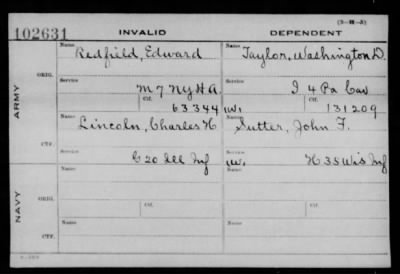 (3-H-3)
102631 INVALID DEPENDENT
Name Name
Redfield, Edward Taylor, Washington D.
ORIG.
Service Service
M 7 NY H A. I 4 Pa Cav
Ctf. Ctf.
63344 (W). 131209
ARMY
Name Name
Lincoln, Charles H Sutter, John F.
CTF.
Service Service
C 20 Ill Inf (W). H 35 Wis Inf
Name Name
ORIG.
Service Ctf. Service Ctf.
NAVY
Name Name
CTF.
Service Service